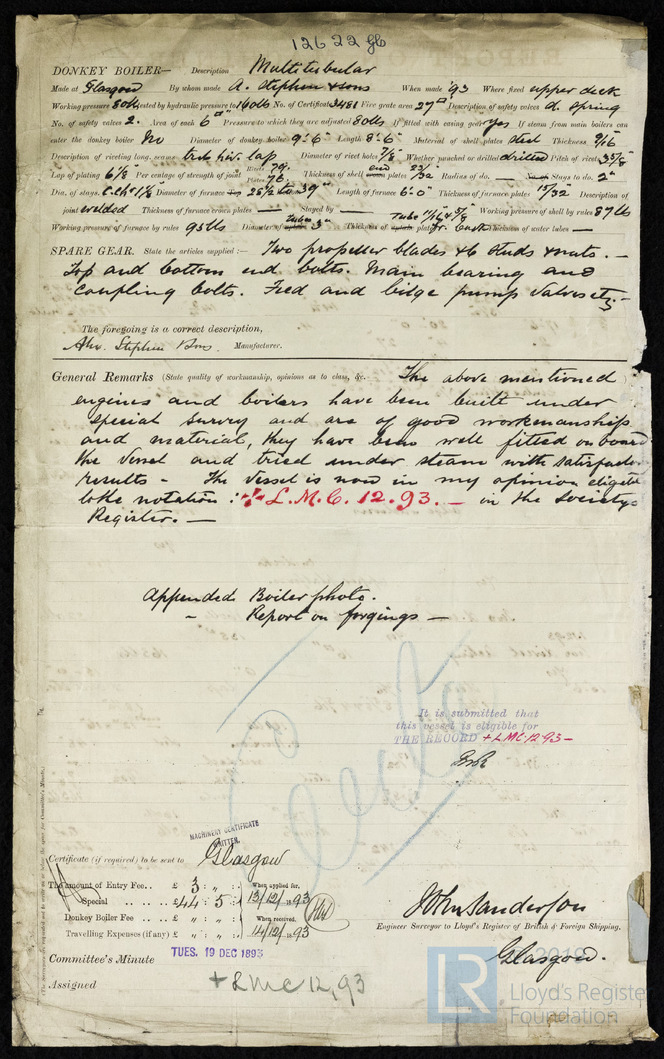 12622 Gb
DONKEY BOILER— Description Multitubular
Made at Glasgow By whom made A. Stephen & sons When made '93 Where fixed upper deck
Working pressure 80lbs tested by hydraulic pressure to 160lbs No. of Certificate 3481 Fire grate area 27 Description of safety valves d. spring
No. of safety valves 2. Area of each 6 Pressure to which they are adjusted 80lbs If fitted with easing gear yes If steam from main boilers can
enter the donkey boiler No Diameter of donkey boiler 9'-6" Length 8'-6" Material of shell plates steel Thickness 9/16
Description of riveting long. seams treb. riv. lap Diameter of rivet holes 7/8 Whether punched or drilled drilled Pitch of rivets 3 5/8"
Lap of plating 6 1/8 Per centage of strength of joint Rivets 79. Plates 76. Thickness of shell end plates 23/32 Radius of do. — Stays to do. 2"
Dia. of stays. Diameter of furnace Length of furnace 6'-0" Thickness of furnace plates 15/32 Description of
joint welded Thickness of furnace crown plates — Stayed by — Working pressure of shell by rules 87 lbs
Working pressure of furnace by rules 93lbs Diameter of tubes 3" Thickness of plates Thickness of water tubes —
SPARE GEAR. State the articles supplied:— Two propeller blades & 6 studs & nuts. —
Top and bottom end bolts. Main bearing and
coupling bolts. Feed and bilge pump valves etc —
The foregoing is a correct description,
Alex. Stephen & Sons Manufacturer.
General Remarks (State quality of workmanship, opinions as to class, &c. The above mentioned
engines and boilers have been built under
special survey and are of good workmanship
and material, they have been well fitted on board
the vessel and tried under steam with satisfactory
results - The vessel is now in my opinion eligible
to the notation :- + L.M.C. 12.93. — in the Society's
Register. —
Appended Boiler photo.
" Report on forgings —
It is submitted that
this vessel is eligible for
THE RECORD + LMC 12.93 —
MACHINERY CERTIFICATE
WRITTEN.
Certificate (if required) to be sent to Glasgow
The amount of Entry Fee.. £ 3 : " : When applied for,
Special .. .. .. £ 44 : 5 : 13/12/1893
Donkey Boiler Fee .. .. £ " : " : When received,
Travelling Expenses (if any) £ " : " : 14/12/1893
John Sanderson
Engineer Surveyor to Lloyd's Register of British & Foreign Shipping.
Committee's Minute TUES. 19 DEC 1893
Glasgow.
Assigned + LMC 12,93
2019
LR
Lloyd's Register
Foundation